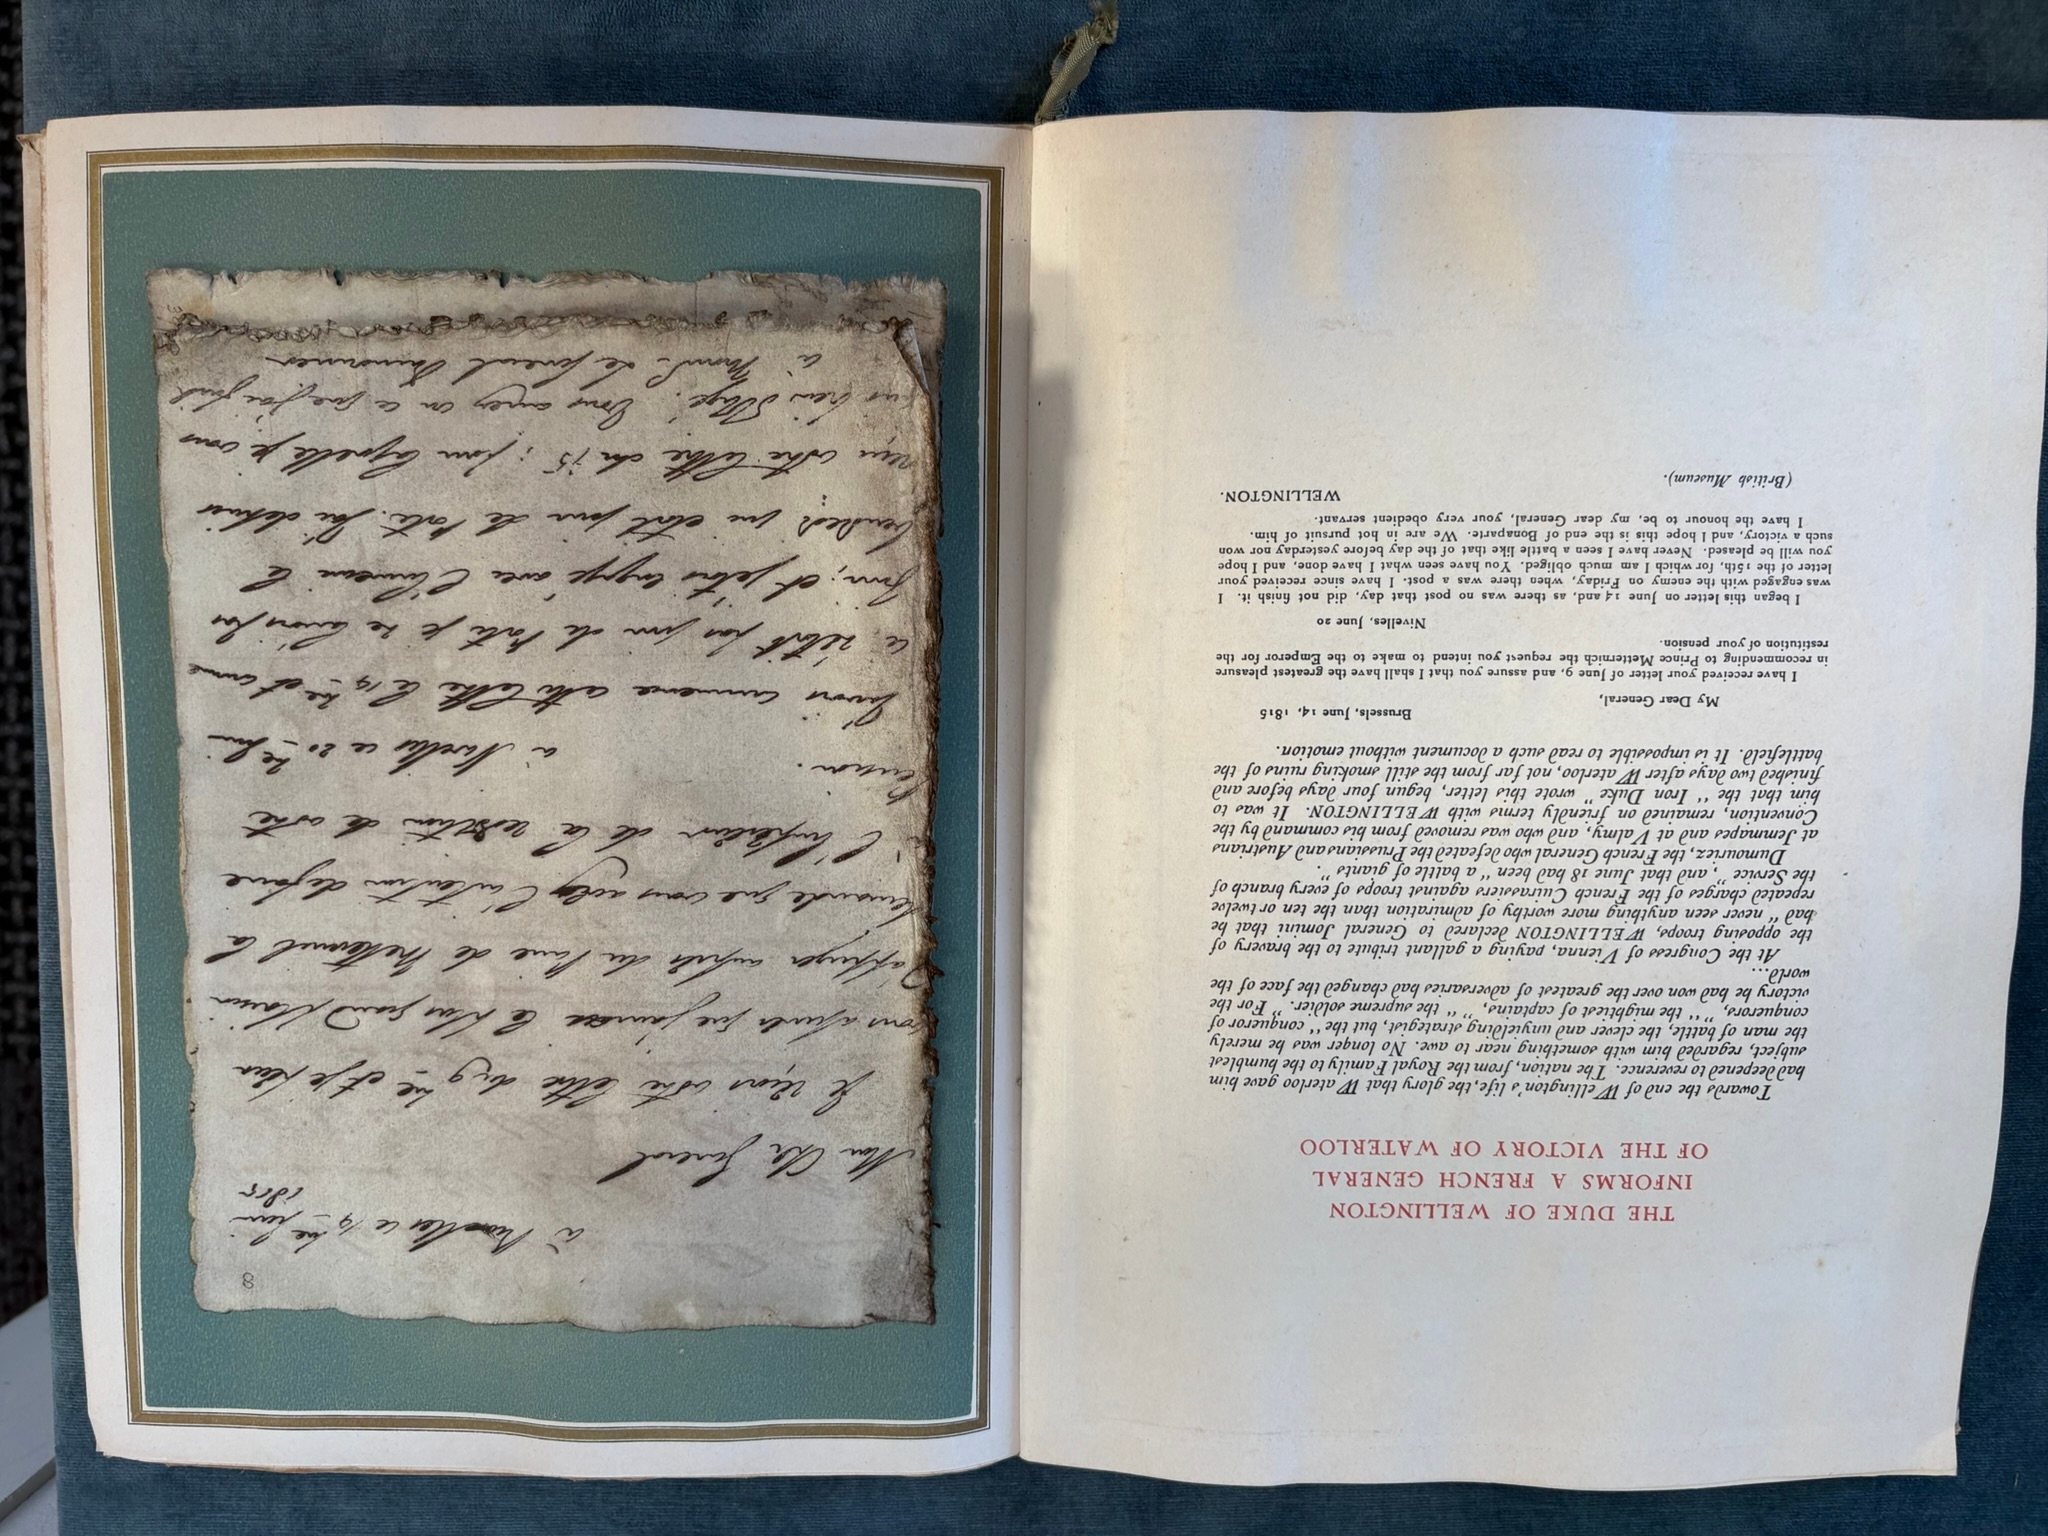 THE DUKE OF WELLINGTON
INFORMS A FRENCH GENERAL
OF THE VICTORY OF WATERLOO
Towards the end of Wellington's life, the glory that Waterloo gave him
had deepened to reverence. The nation, from the Royal Family to the humblest
subject, regarded him with something near to awe. No longer was he merely
the man of battle, the clever and unyielding strategist, but the “ conqueror of
conquerors, ” “ the mightiest of captains, ” “ the supreme soldier. ” For the
victory he had won over the greatest of adversaries had changed the face of the
world...
At the Congress of Vienna, paying a gallant tribute to the bravery of
the opposing troops, WELLINGTON declared to General Jomini that he
had “ never seen anything more worthy of admiration than the ten or twelve
repeated charges of the French Cuirassiers against troops of every branch of
the Service ”, and that June 18 had been “ a battle of giants ”.
Dumouriez, the French General who defeated the Prussians and Austrians
at Jemmapes and at Valmy, and who was removed from his command by the
Convention, remained on friendly terms with WELLINGTON. It was to
him that the “ Iron Duke ” wrote this letter, begun four days before and
finished two days after Waterloo, not far from the still smoking ruins of the
battlefield. It is impossible to read such a document without emotion.
Brussels, June 14, 1815
My Dear General,
I have received your letter of June 9, and assure you that I shall have the greatest pleasure
in recommending to Prince Metternich the request you intend to make to the Emperor for the
restitution of your pension.
Nivelles, June 20
I began this letter on June 14 and, as there was no post that day, did not finish it. I
was engaged with the enemy on Friday, when there was a post. I have since received your
letter of the 15th, for which I am much obliged. You have seen what I have done, and I hope
you will be pleased. Never have I seen a battle like that of the day before yesterday nor won
such a victory, and I hope this is the end of Bonaparte. We are in hot pursuit of him.
I have the honour to be, my dear General, your very obedient servant.
WELLINGTON.
(British Museum).
8
à Bruxelles ce 14 me Juin
1815
Mon Cher General
Je reçois votre lettre du 9 me et je peux
vous assurer que j'aurai le plus grand plaisir
D'appuyer auprès du Prince de Metternich la
demande que vous avez l'intention de faire
à l'Empereur de la restitution de votre
Pension.
à Nivelles ce 20 me Juin
J'avois commencé cette lettre le 14 me et comme
ce n'étoit pas jour de Poste je ne l'avois pas
fini; et j'etois engagé avec l'Ennemi le
Vendredi qui etoit jour de Poste. J'ai depuis
reçu votre lettre du 15; pour laquelle je vous
suis bien obligé. Vous aurez vu ce que j'ai fait
à le General Dumouriez